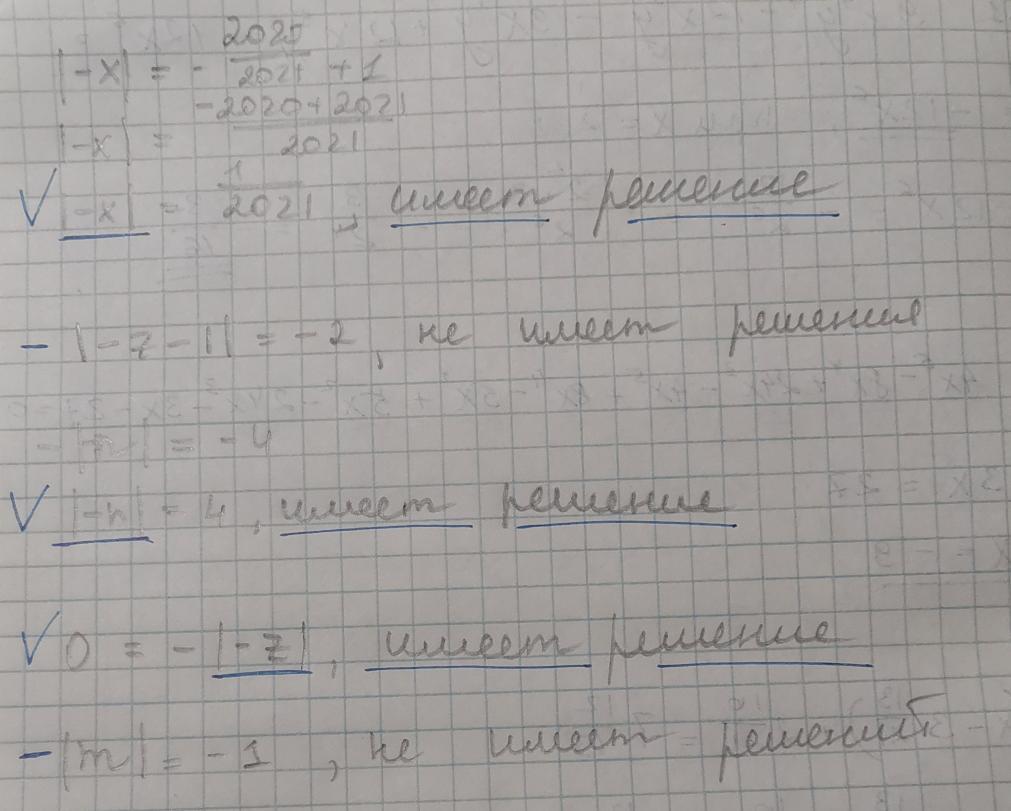 |-x| = - 2020/2021 + 1
|-x| = -2020+2021/2021
V |-x| = 1/2021, имеет решение
- |-7-1| = -2, не имеет решения
= -4
V |-n| = 4, имеет решение
V 0 = -|-z|, имеет решение
-|m| = -1, не имеет решений